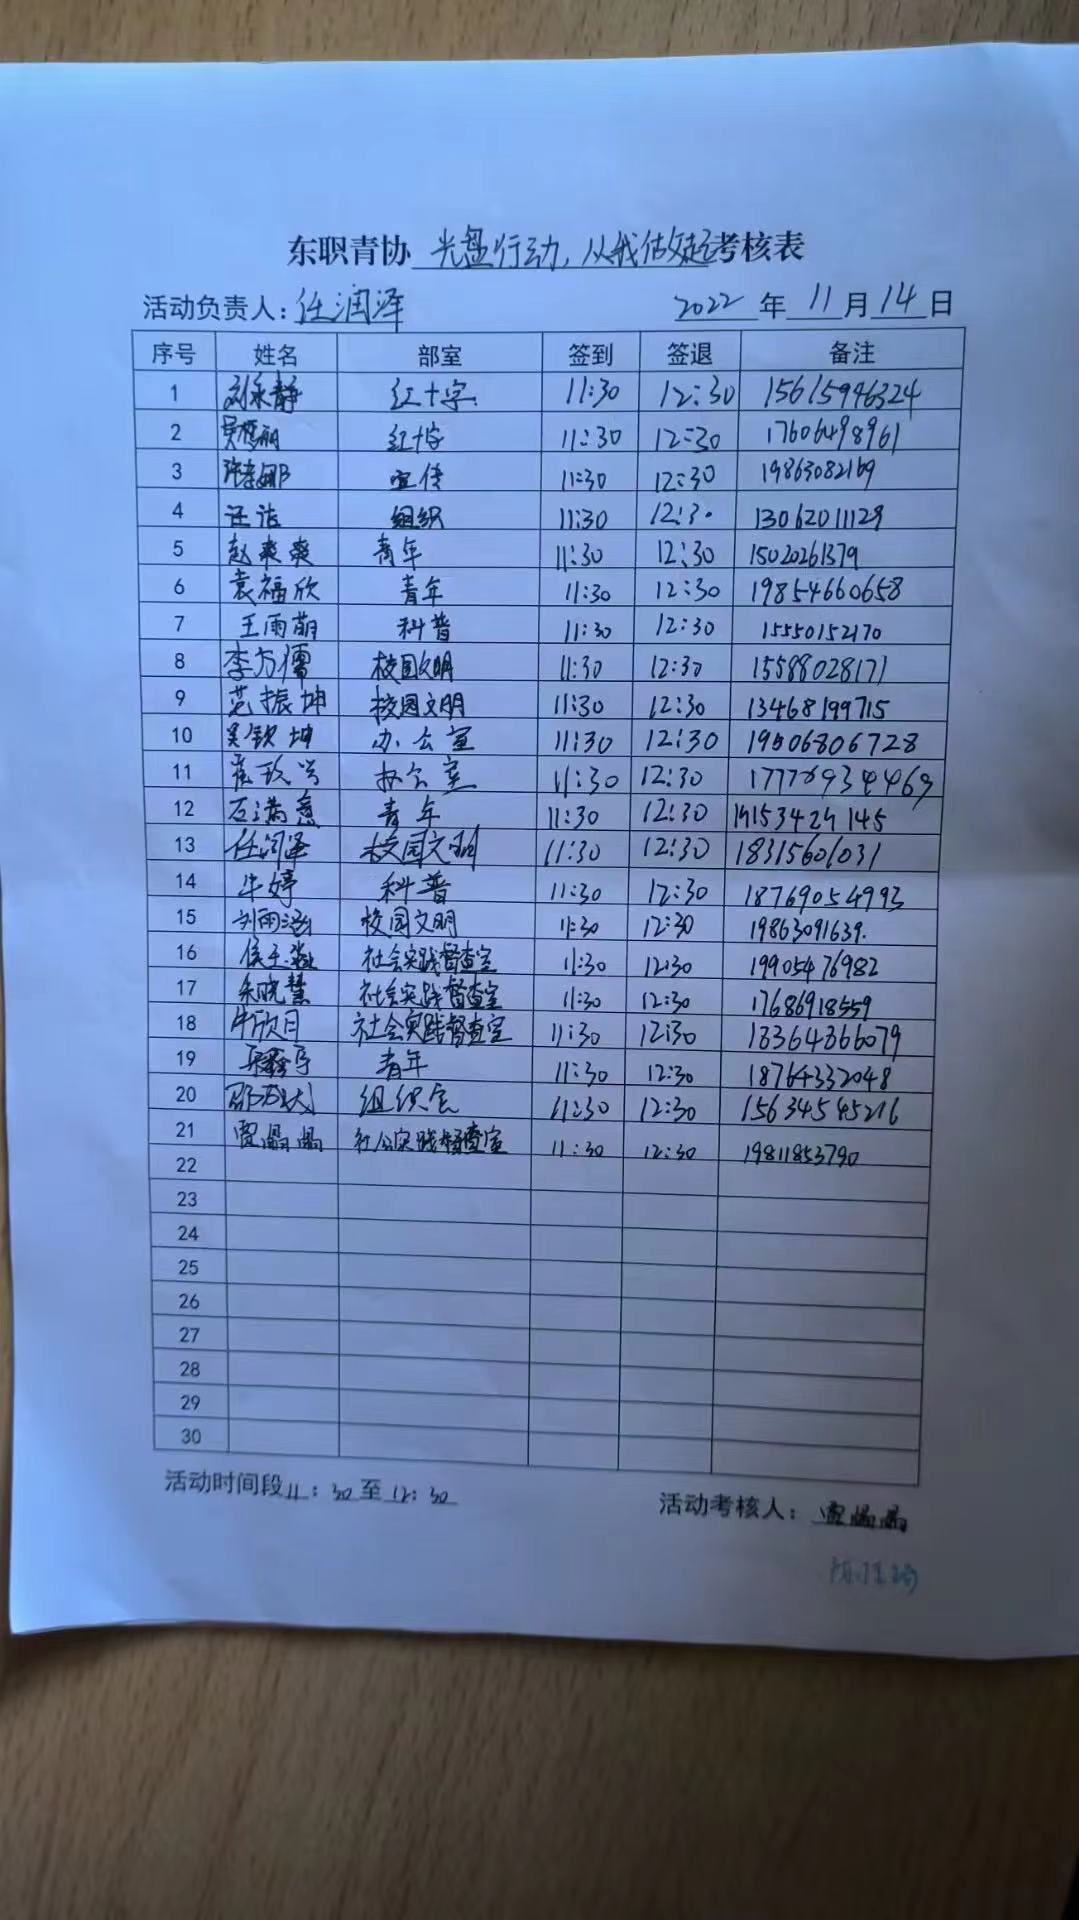 东职青协 光盘行动,从我做起考核表
活动负责人:任润泽 2022年11月14日
序号 姓名 部室 签到 签退 备注
1 刘永静 红十字 11:30 12:30 15615946324
2 红十字 11:30 12:30 17606498961
3 宣传 11:30 12:30 19863082169
4 汪洁 组织 11:30 12:30 13062011129
5 赵爽爽 青年 11:30 12:30 15020261379
6 袁福欣 青年 11:30 12:30 19854660658
7 王雨萌 科普 11:30 12:30 15550152170
8 李方儒 校园文明 11:30 12:30 15588028171
9 范振坤 校园文明 11:30 12:30 13468199715
10 吴钦坤 办公室 11:30 12:30 19506806728
11 办公室 11:30 12:30 17776934469
12 石满意 青年 11:30 12:30 19153429145
13 任润泽 校园文明 11:30 12:30 18315601031
14 牛婷 科普 11:30 12:30 18769054993
15 刘雨涵 校园文明 11:30 12:30 19863091639.
16 社会实践督查室 11:30 12:30 19905476982
17 朱晓慧 社会实践督查室 11:30 12:30 17686918559
18 牛欣月 社会实践督查室 11:30 12:30 18364366079
19 青年 11:30 12:30 18764332048
20 组织室 11:30 12:30 15634545216
21 贾晶晶 社会实践督查室 11:30 12:30 19811853790
22
23
24
25
26
27
28
29
30
活动时间段11:30至12:30
活动考核人:贾晶晶